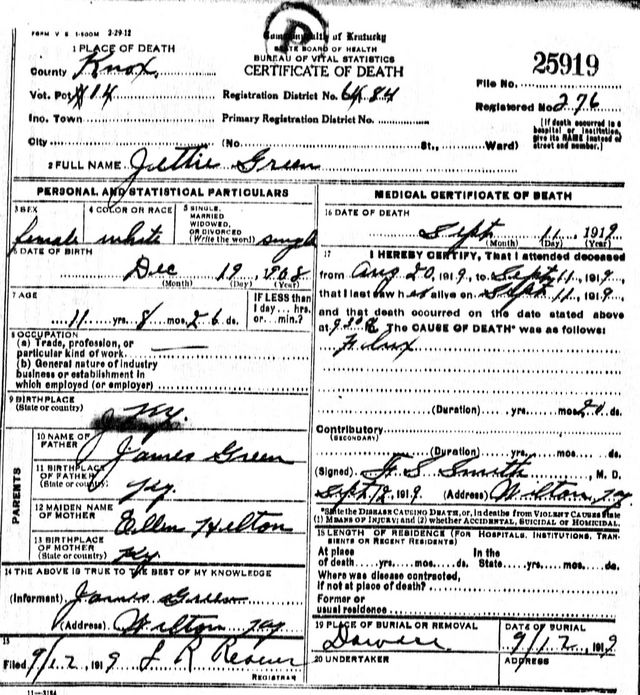 FORM V S 1-500M 2-29-12
Commonwealth of Kentucky
STATE BOARD OF HEALTH
BUREAU OF VITAL STATISTICS
CERTIFICATE OF DEATH
1 PLACE OF DEATH
County Knox
Vot. Pct #14
Inc. Town
City
Registration District No. 6484
Primary Registration District No.
(No. St., Ward)
File No. 25919
Registered No. 276
[If death occurred in a hospital or institution, give its NAME instead of street and number.]
2 FULL NAME Jettie Green
PERSONAL AND STATISTICAL PARTICULARS
3 SEX
female
4 COLOR OR RACE
white
5 SINGLE, MARRIED WIDOWED, OR DIVORCED (Write the word)
single
6 DATE OF BIRTH
Dec 19, 1908
(Month) (Day) (Year)
7 AGE
11 yrs. 8 mos. 26 ds.
IF LESS than 1 day ... hrs. or ... min.?
8 OCCUPATION
(a) Trade, profession, or
particular kind of work.
(b) General nature of industry
business or establishment in
which employed (or employer)
9 BIRTHPLACE
(State or country)
Ky.
PARENTS
10 NAME OF FATHER
James Green
11 BIRTHPLACE OF FATHER (State or country)
Ky.
12 MAIDEN NAME OF MOTHER
Ellen Helton
13 BIRTHPLACE OF MOTHER (State or country)
Ky
14 THE ABOVE IS TRUE TO THE BEST OF MY KNOWLEDGE
(Informant) James Green
(Address) Wilton Ky
15
Filed 9/12, 1919
REGISTRAR
11-3184
MEDICAL CERTIFICATE OF DEATH
16 DATE OF DEATH
Sept 11, 1919
(Month) (Day) (Year)
17 I HEREBY CERTIFY, That I attended deceased
from Aug 20, 1919, to Sept 11, 1919,
that I last saw her alive on Sept 11, 1919,
and that death occurred on the date stated above
at The CAUSE OF DEATH* was as follows:
Flux
(Duration) yrs. mos. 20 ds.
Contributory
(SECONDARY)
(Duration) yrs. mos. ds.
(Signed) F. S. Smith, M. D.
Sept 12, 1919 (Address) Wilton, Ky
*State the DISEASE CAUSING DEATH, or, in deaths from VIOLENT CAUSES state
(1) MEANS OF INJURY; and (2) whether ACCIDENTAL, SUICIDAL or HOMICIDAL.
18 LENGTH OF RESIDENCE (FOR HOSPITALS, INSTITUTIONS, TRANSIENTS OR RECENT RESIDENTS)
At place In the
of death yrs. mos. ds. State yrs. mos. ds.
Where was disease contracted,
if not at place of death?
Former or
usual residence
19 PLACE OF BURIAL OR REMOVAL
DATE OF BURIAL
9/12, 1919
20 UNDERTAKER
ADDRESS